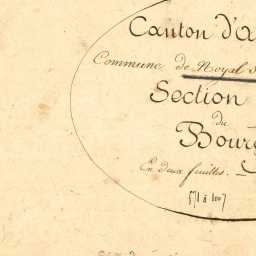 Canton d'A
Commune de Royal
Section
du
Bourg
En deux feuilles.